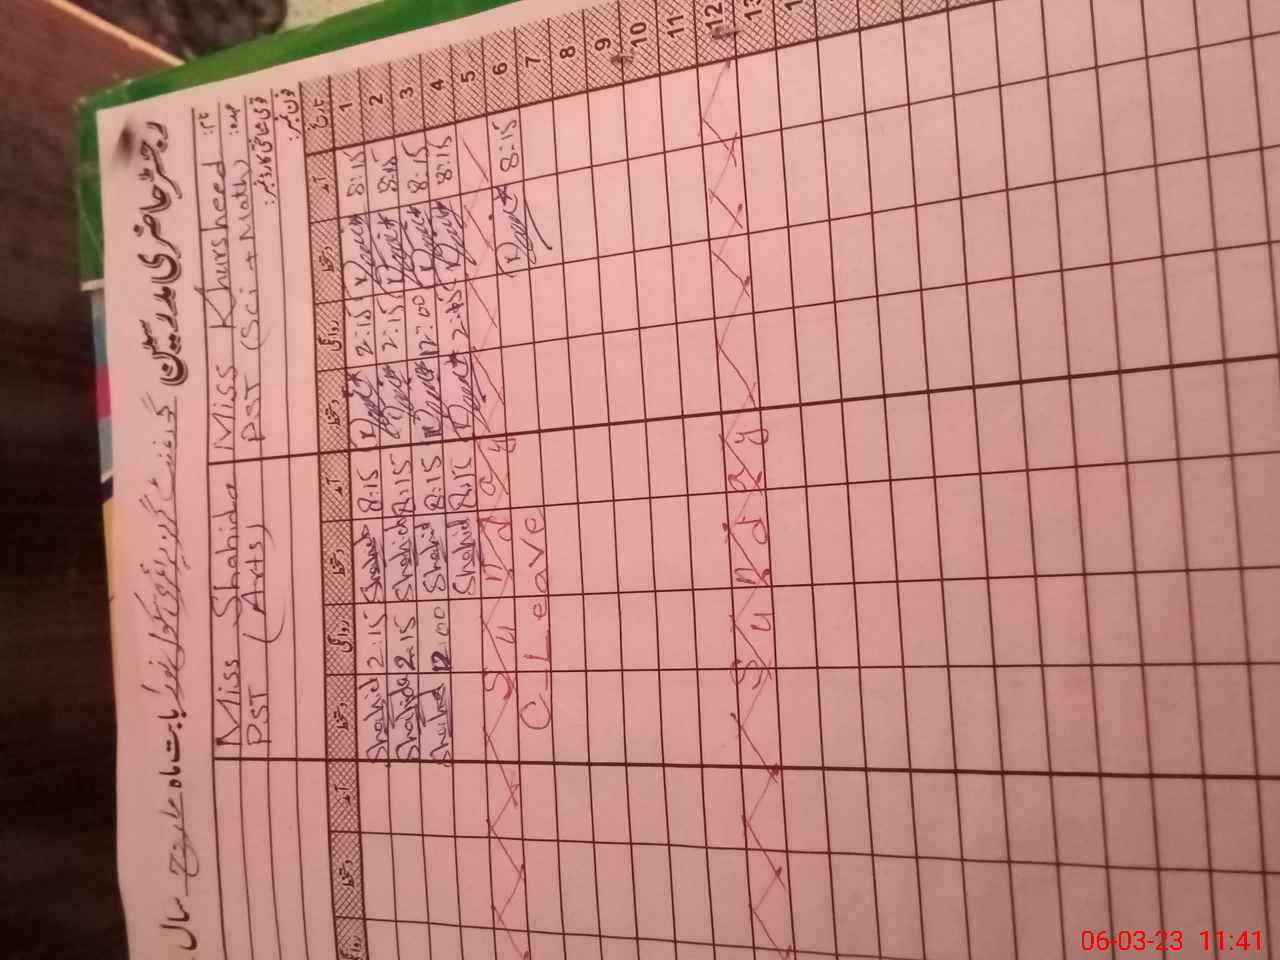 رجسٹر حاضری مدرسین گورنمنٹ گرلز پرائمری سکول بابت ماہ مارچ سال
نام: Miss Khursheed Miss Shahida
عہدہ: PST (Sci + Math) PST (Arts)
قومی شناختی کارڈ نمبر:
فون نمبر:
تاریخ آمد دستخط روانگی دستخط آمد دستخط روانگی دستخط آمد دستخط روانگی
1 8:15 2:15 8:15 Shahid 2:15 Shahid
2 8:15 2:15 8:15 Shahid 2:15 Shahida
3 8:15 12:00 8:15 Shahid 12:00 Shahid
4 8:15 2:45 8:15 Shahid
5 Sunday
6 8:15 C_Leave
7
8
9
10
11
12 Sunday
13
06-03-23 11:41